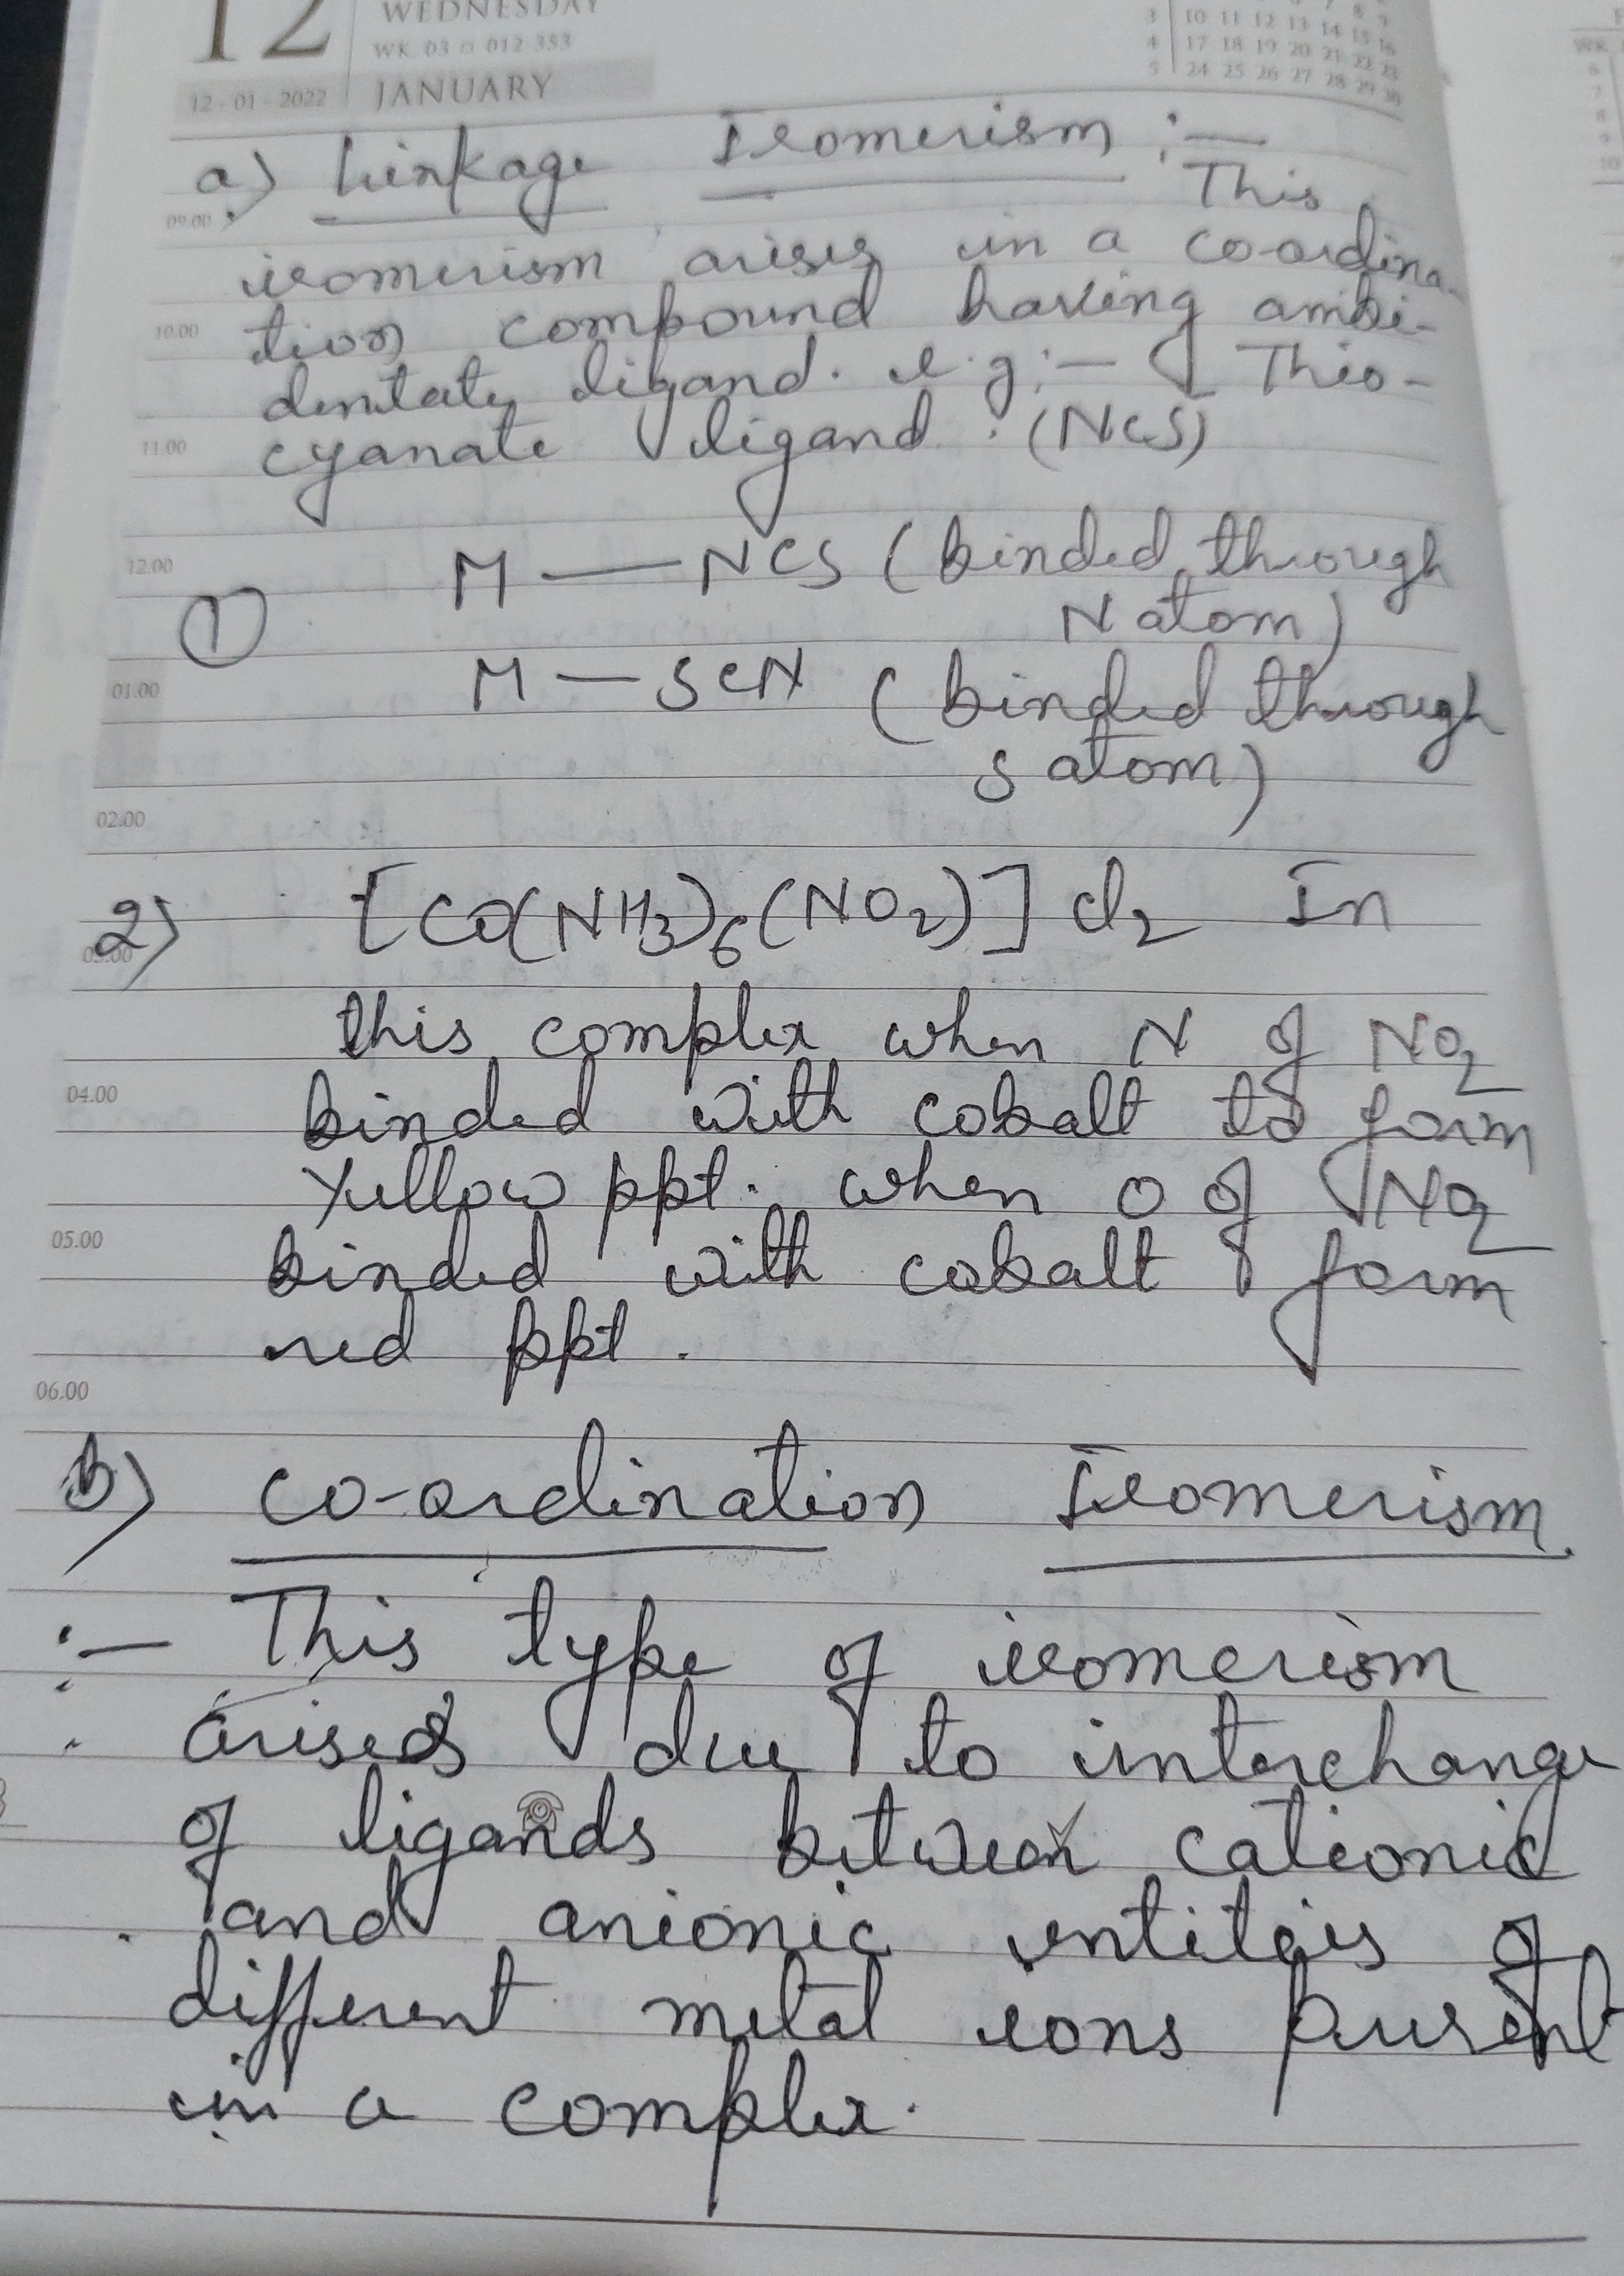 12
WEDNESDAY
WK 03 012-353
12-01-2022 JANUARY
3 10 11 12 13 14 15 16
4 17 18 19 20 21 22 23
5 24 25 26 27 28 29 30
a) Linkage Isomerism :-
This
09.00
isomerism arises in a co-ordina-
10.00 tion compound having ambi-
dentate ligand. e.g:- Thio-
11.00 cyanate ligand. (NCS)
12.00 M — NCS (binded through
① N atom)
01.00 M — SCN (binded through
S atom)
02.00
2) [CO(NH3)6(NO2)]Cl2 In
03.00
this complex when N of NO2
04.00 binded with cobalt to form
Yellow ppt. when O of NO2
05.00 binded with cobalt form
red ppt.
06.00
b) CO-ordination Isomerism
:- This type of isomerism
arises due to interchange
of ligands between cationic
and anionic entities of
different metal ions present
in a complex.